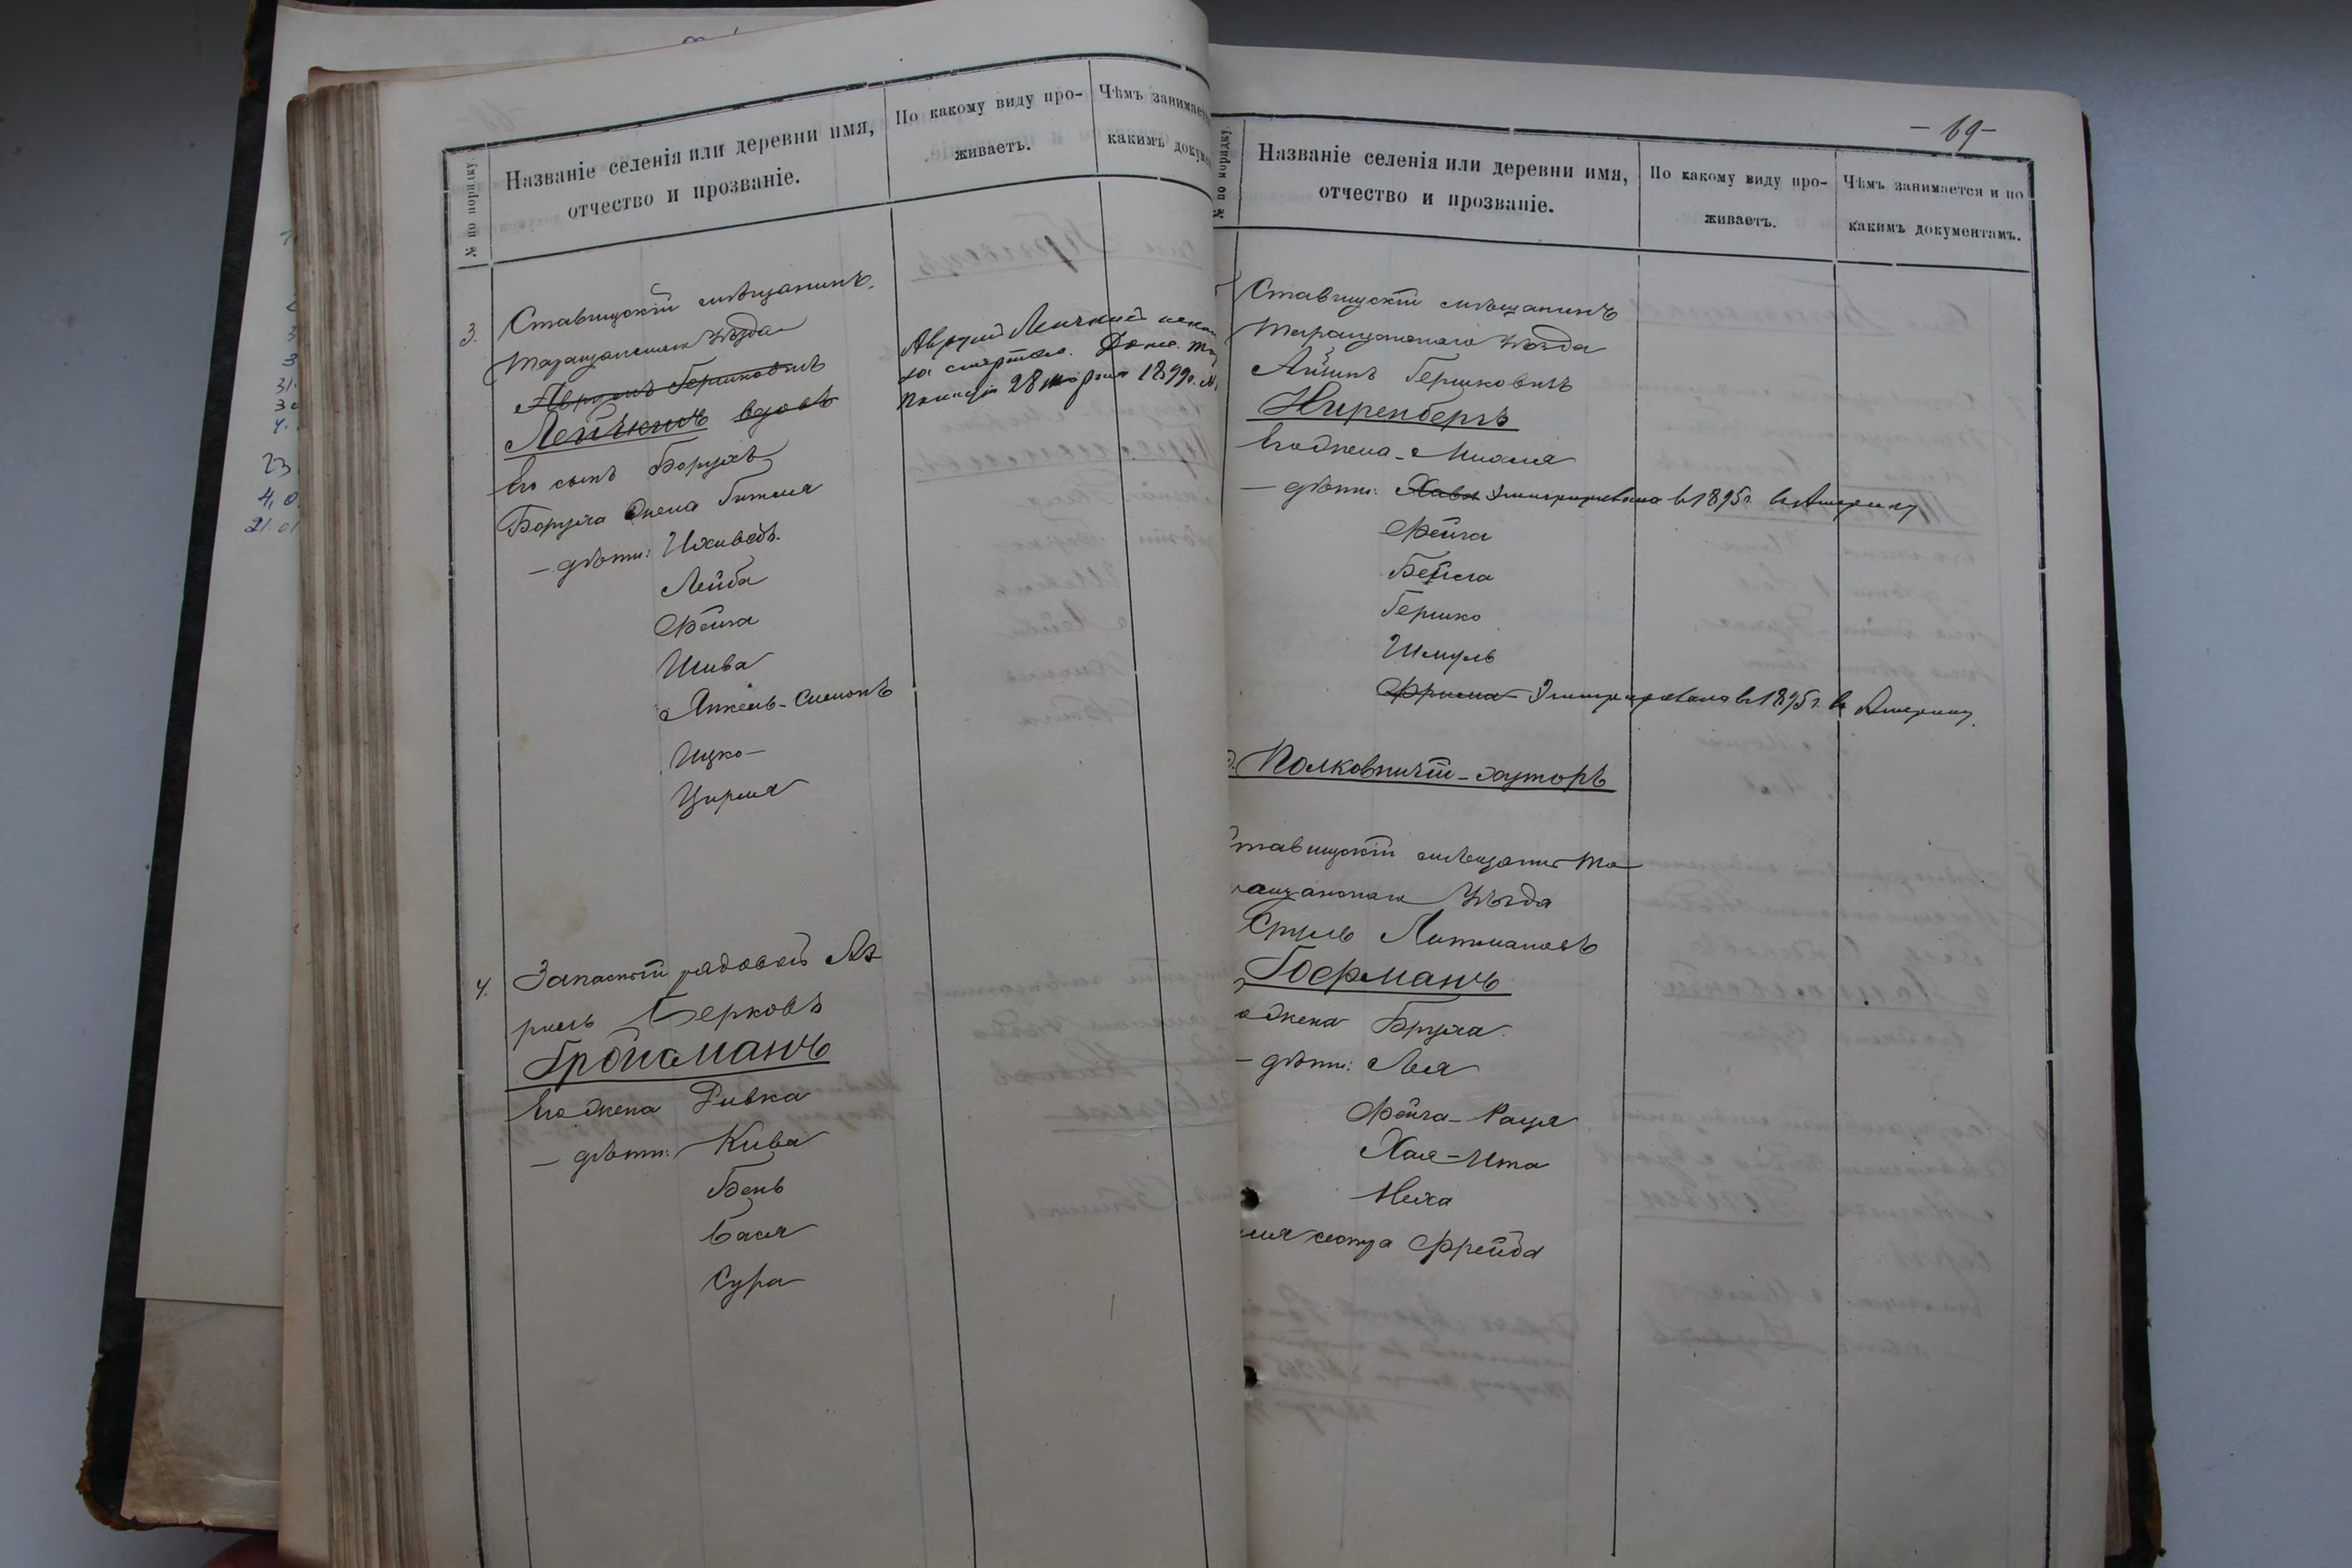 № по порядку.
Названіе селенія или деревни имя,
отчество и прозваніе.
По какому виду про-
живаетъ.
Чѣмъ занимает
какимъ докуме
3.
Ставищскій мѣщанинъ
Таращанскаго уѣзда
Аврумъ Гершковичъ
Его сынъ Борухъ
Боруха жена Гитля
— дѣти: Иохиведъ.
Лейба
Фейга
Шива
Янкель-Симонъ
Ицко
Цирля
Аврумъ
за смертью.
28 марта 1899г. №
4.
Запасный рядовой Аз
риль Берковъ
Гройсманъ
Его жена Ривка
— дѣти: Кива
Бень
Бася
Сура
— 69 —
№ по порядку
Названіе селенія или деревни имя,
отчество и прозваніе.
По какому виду про-
живаетъ.
Чѣмъ занимается и по
какимъ документамъ.
Ставищскій мѣщанинъ
Таращанскаго уѣзда
Айзикъ Гершковичъ
Ниренбергъ
Его жена — Михля
— дѣти: Хава Эмигрировала в 1895г. в Америку
Фейга
Бейла
Гершко
Шмуль
Фрима Эмигрировала в 1895г. в Америку.
Полковничій-хуторъ
тавищскій мѣщанин Та
ращанскаго уѣзда
Сруль Литмановъ
Гофманъ
жена Бруха
— дѣти: Лея
Фейга-Рацля
Хая-Ита
Неха
сестра Фрейда